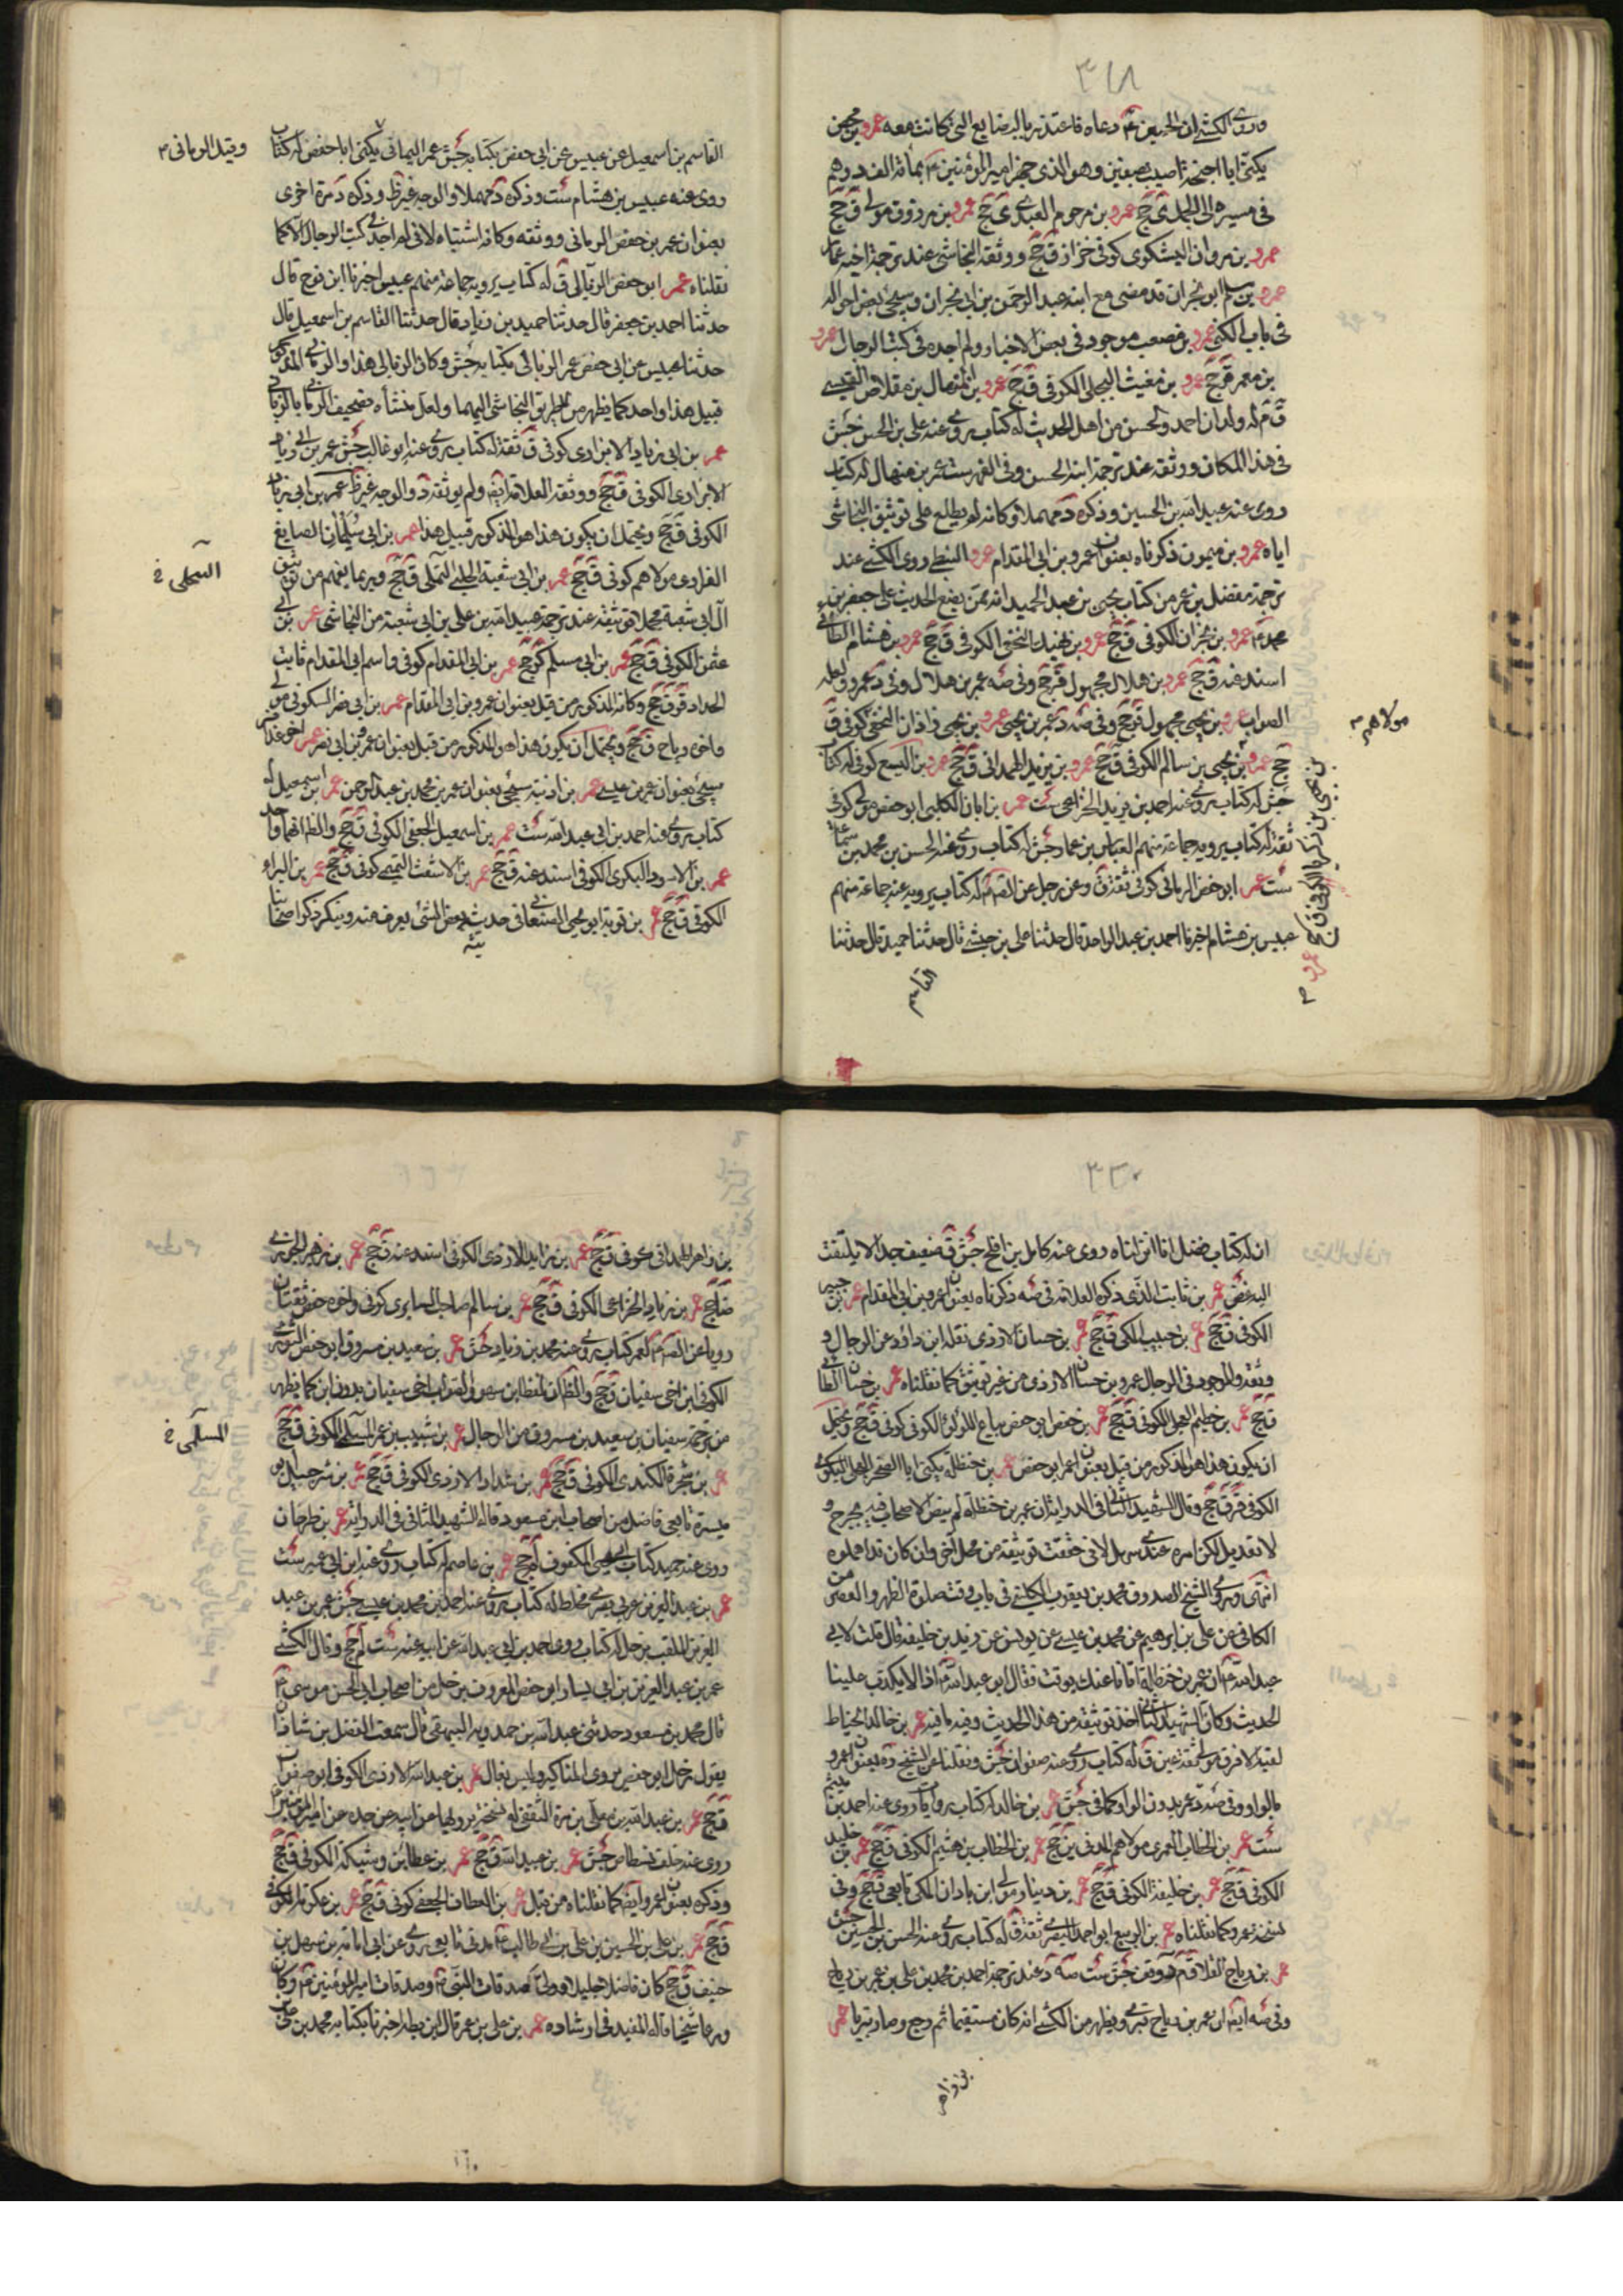 ٣١٨
وروى الكشي ان الحسين ع دعاه فاعتذر بالبضايع التي كانت معه عمرو بن محصن
يكنى ابا احيحة اصيب بصفين وهو الذي جهز امير المؤمنين ع بمائة الف درهم
في مسيره الى الجمل ى جخ عمرو بن مرحوم العبدي ى جخ عمرو بن مرزوق مولى ق جخ
عمرو بن مروان اليشكري كوفي خزاز ق جخ ووثقه النجاشي عند ترجمة اخيه عمار
عمرو بن مسلم ابو نجران قد مضى مع ابنه عبد الرحمن بن ابي نجران وسيجئ بعض احواله
في باب الكنى عمرو بن مصعب موجود في بعض الاخبار ولم اجده في كتب الرجال عمرو
بن معمر ق جخ عمرو بن مغيث البجلي الكوفي ق جخ عمرو بن المنهال بن مقلاص القيسي
ق م له ولدان احمد والحسن من اهل الحديث له كتاب روى عنه علي بن الحسن جش
في هذا المكان ووثقه عند ترجمة ابنه الحسن وفي الفهرست عمر بن منهال له كتاب
روى عنه عبيد الله بن الحسين وذكره د مهملا وكانه لم يطلع على توثيق النجاشي
اياه عمرو بن ميمون ذكرناه بعنوان عمرو بن ابي المقدام عمرو النبطي روى الكشي عند
ترجمة مفضل بن عمر من كتاب يحيى بن عبد الحميد انه ممن يضع الحديث على جعفر بن
محمد ع عمرو بن نجران الكوفي ق جخ عمرو بن نهيد النخعي الكوفي ق جخ عمرو بن هشام الطائي
اسند عنه ق جخ عمرو بن هلال مجهول قر جخ وفي صه عمر بن هلال وفي د عمرو ولعله
الصواب عمرو بن يحيى مجهول قر جخ وفي صه د عمر بن يحيى عمرو بن يحيى بن زاذان النخعي كوفي ق
جخ عمرو بن يحيى بن سالم الكوفي ق جخ عمرو بن يزيد الهمداني ق جخ عمرو بن اليسع كوفي له كتاب
جش له كتاب روى عنه احمد بن زيد الخزاعي ست عمر بن ابان الكلبي ابو حفص مولى كوفي
ثقة له كتاب يرويه جماعة منهم العباس بن عمار جش له كتاب روى عنه الحسن بن محمد بن سماعة
ست عمر ابو حفص الرماني كوفي ثقة ق وعن رجل عن الصم له كتاب يرويه عنه جماعة منهم
عبيس بن هشام اخبرنا احمد بن عبد الواحد قال حدثنا علي بن حبشي قال حدثنا حميد قال حدثنا
القاسم
مولاهم
القاسم بن اسمعيل عن عبيس عن ابي حفص بكتابه جش عمر اليماني يكنى ابا حفص له كتاب
وقيل الرماني
روى عنه عبيس بن هشام ست وذكره د مهملا والوجه غير ظ وذكره د مرة اخرى
بعنوان عمر بن حفص الرماني ووثقه وكانه اشتباه لاني لم اجد في كتب الرجال الا كما
نقلناه عمر ابو حفص الزبالي ق له كتاب يرويه جماعة منهم عبيس اخبرنا ابن نوح قال
حدثنا احمد بن جعفر قال حدثنا حميد بن زياد قال حدثنا القاسم بن اسمعيل قال
حدثنا عبيس عن ابي حفص عمر الزبالي بكتابه جش وكان الزبالي هذا والرماني المذكور
قبيل هذا واحد كما يظهر من طريق النجاشي اليهما ولعل منشأه تصحيف الرماني بالزبالي
عمر بن ابي زياد الابزاري كوفي ق ثقة له كتاب روى عنه ابو غالب جش عمر بن ابي زياد
الابزاري الكوفي ق جخ ووثقه العلامة ايضا ولم يوثقه د والوجه غير ظ عمر بن ابي زياد
الكوفي ق جخ ويحتمل ان يكون هذا هو المذكور قبيل هذا عمر بن ابي سليمان الصايغ
الفزاري مولاهم كوفي ق جخ عمر بن ابي شعبة الحلبي ق جخ وربما يفهم من توثيق
آل ابي شعبة مجملا توثيقه عند ترجمة عبيد الله بن علي بن ابي شعبة من النجاشي عمر بن ابي
عثمن الكوفي ق جخ عمر بن ابي مسلم كر جخ عمر بن ابي المقدام كوفي واسم ابي المقدام ثابت
الحداد ق جخ وكانه المذكور من قبل بعنوان عمرو بن ابي المقدام عمر بن ابي نصر السكوني مولى
واخوه رباح ق جخ ويحتمل ان يكون هذا هو المذكور من قبل بعنوان عمرو بن ابي نصر عمر اخو عذافر
سيجئ بعنوان عمر بن عيسى عمر بن اذينة سيجئ بعنوان عمر بن محمد بن عبد الرحمن عمر بن اسمعيل له
كتاب روى عنه احمد بن ابي عبد الله ست عمر بن اسمعيل الجعفي الكوفي ق جخ والظ انهما واحد
عمر بن الاسود البكري الكوفي اسند عنه ق جخ عمر بن الاشعث التميمي كوفي ق جخ عمر بن البراء
الكوفي ق جخ عمر بن توبة ابو يحيى الصنعاني في حديثه بعض الشئ يعرف منه وينكر ذكر اصحابنا
٣٢٠
ان له كتاب فضل انا انزلناه روى عنه كامل بن افلح جش ق ضعيف جدا لا يلتفت
اليه غض عمر بن ثابت الذي ذكره العلامة في صه ذكرناه بعنوان عمرو بن ابي المقدام عمر بن جبير
الكوفي ق جخ عمر بن حبيب المكي ق جخ عمر بن حسان الازدي نقله ابن داود عن الرجال و
وثقه والموجود في الرجال عمرو بن حسان الازدي من غير توثيق كما نقلناه عمر بن حسان الطائي
ق جخ عمر بن حطيم العجلي الكوفي ق جخ عمر بن حفص ابو حفص بياع اللؤلؤ الكوفي كوفي ق جخ ويحتمل
ان يكون هذا هو المذكور من قبل بعنوان عمر ابو حفص عمر بن حنظلة يكنى ابا الصخر العجلي البكري
الكوفي قر ق جخ وقال الشهيد الثاني في الدراية ان عمر بن حنظلة لم ينص الاصحاب فيه بجرح و
لا تعديل لكن امره عندي سهل لاني حققت توثيقه من محل آخر وان كان قد اهملوه
انتهى وروى الشيخ الصدوق محمد بن يعقوب الكليني في باب وقت صلوة الظهر والعصر من
الكافي عن علي بن ابراهيم عن محمد بن عيسى عن يونس عن يزيد بن خليفة قال قلت لابي
عبد الله ع ان عمر بن حنظلة اتانا عنك بوقت فقال ابو عبد الله ع اذا لا يكذب علينا
الحديث وكان الشهيد الثاني اخذ توثيقه من هذا الحديث وفيه ما فيه عمر بن خالد الحناط
لقبه الافرق مولى ثقة عين ق له كتاب روى عنه صفوان جش ونقلنا عن الشيخ ره بعنوان عمرو
بالواو وفي صه د عمر بدون الواو كما في جش عمر بن خالد له كتاب روايات روى عنه احمد بن ميثم
ست عمر بن الخطاب العمري مولاهم المدني ين جخ عمر بن الخطاب بن هشيم الكوفي ق جخ عمر بن خليد
الكوفي ق جخ عمر بن خليفة الكوفي ق جخ عمر بن دينار مولى ابن باذان المكي تابعي ق جخ وفي
نسخة عمرو كما نقلناه عمر بن الربيع ابو احمد البصري ثقة ق له كتاب روى عنه الحسن بن الحسين جش
عمر بن رياح القلا ق م وقف جش ست صه د عند ترجمة احمد بن محمد بن علي بن عمر بن رياح
وفي صه ايضا ان عمر بن رياح بتري ويظهر من الكشي انه كان مستقيما ثم رجع وصار بتريا عمر
بن زاهر
بن زاهر الهمداني كوفي ق جخ عمر بن زايد الازدي الكوفي اسند عنه ق جخ عمر بن زهير الجزري
ضا جخ عمر بن زياد الخزاعي الكوفي ق جخ عمر بن سالم صاحب السابري كوفي واخوه حفص ثقتان
رويا عن الصم لعمر كتاب روى عنه محمد بن زياد جش عمر بن سعيد بن مسروق ابو حفص الثوري
الكوفي ابن اخي سفيان ق جخ والظ ان لفظة ابن سهو والصواب اخي سفيان بدون ابن كما يظهر
من ترجمة سفيان بن سعيد بن مسروق من الرجال عمر بن شبيب بن عمر المسلي الكوفي ق جخ
المسلمي خ
عمر بن شجرة الكندي الكوفي ق جخ عمر بن شداد الازدي الكوفي ق جخ عمر بن شرحبيل ابو
ميسرة تابعي فاضل من اصحاب ابن مسعود قاله الشهيد الثاني في الدراية عمر بن طرخان
روى عنه حميد كتاب ابي يحيى المكفوف لم جخ عمر بن عاصم له كتاب روى عنه ابن ابي عمير ست
عمر بن عبد العزيز عربي بصري مخلط له كتاب روى عنه احمد بن محمد بن عيسى جش عمر بن عبد
العزيز الملقب بزحل له كتاب روى احمد بن ابي عبد الله عن ابيه عنه ست لم جخ وقال الكشي
عمر بن عبد العزيز بن ابي بشار ابو حفص المعروف بزحل من اصحاب ابي الحسن موسى ع
قال محمد بن مسعود حدثني عبد الله بن حمدويه البيهقي قال سمعت الفضل بن شاذان
يقول زحل ابو حفص يروى المناكير وليس بغال عمر بن عبد الله الازدي الكوفي ابو صفوان
ق جخ عمر بن عبد الله بن يعلى بن مرة الثقفي له نسخة يرويها عن ابيه عن جده عن امير المؤمنين ع
روى عنه خلف بسطاص جش عمر بن عبيد الله ق جخ عمر بن عطاء بن وشيكة الكوفي ق جخ
وذكره بعنوان عمرو ايضا كما نقلناه من قبل عمر بن العطاف الجعفي كوفي ق جخ عمر بن عكرمة الكوفي
ق جخ عمر بن علي بن الحسين بن علي بن ابي طالب ع مدني تابعي روى عن ابي امامة بن سهل بن
حنيف ق جخ كان فاضلا جليلا وولى صدقات النبي ص وصدقات امير المؤمنين ع وكان
ورعا سخيا قاله المفيد في ارشاده عمر بن علي بن عمر قال ابن بطة اخبرنا بكتابه محمد بن علي